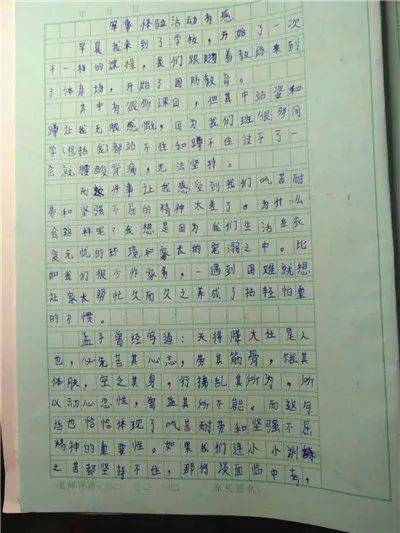 年 月 日
军事体验活动有感
早晨我来到了学校，开始了一次
不一样的课程，我们跟随着教练来到
了体育场，开始了国防教育。
其中有很多课目，但其中站姿和
蹲让我无限感慨，因为我们班很多同
学(包括我)都站不住和蹲不住过不了一
会就腰酸背痛，无法坚持。
而这件事让我感受到我们吃苦耐
劳和坚强不屈的精神太差了。为什么
会这样呢？我想是因为我们生活在衣
食无忧的环境和家长的宠溺之中。比
如我们很少作家务，一遇到困难就想
让家长帮忙久而久之养成了拈轻怕重
的习惯。
孟子曾经写道：天将降大任是人
也，必先苦其心志，劳其筋骨，饿其
体肤，空之其身，行拂乱其所为，所
以动心忍性，曾益其所不能。而这句
话也恰恰体现了吃苦耐劳和坚强不屈
精神的重要性。如果我们连小小训练
之苦都坚持不住，那何谈面临中考，
老师评语： 家长签名：